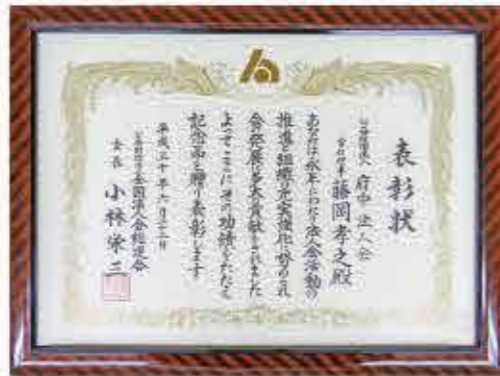 表彰状
公益社団法人 府中法人会
藤岡孝之殿
あなたは永年にわたり法人会活動の
推進と組織の充実強化に努められ
会発展に多大な貢献をされました
よってここにその功績をたたえ
記念品を贈り表彰します
平成三十年六月十二日
公益財団法人 全国法人会総連合
会長 小林栄三